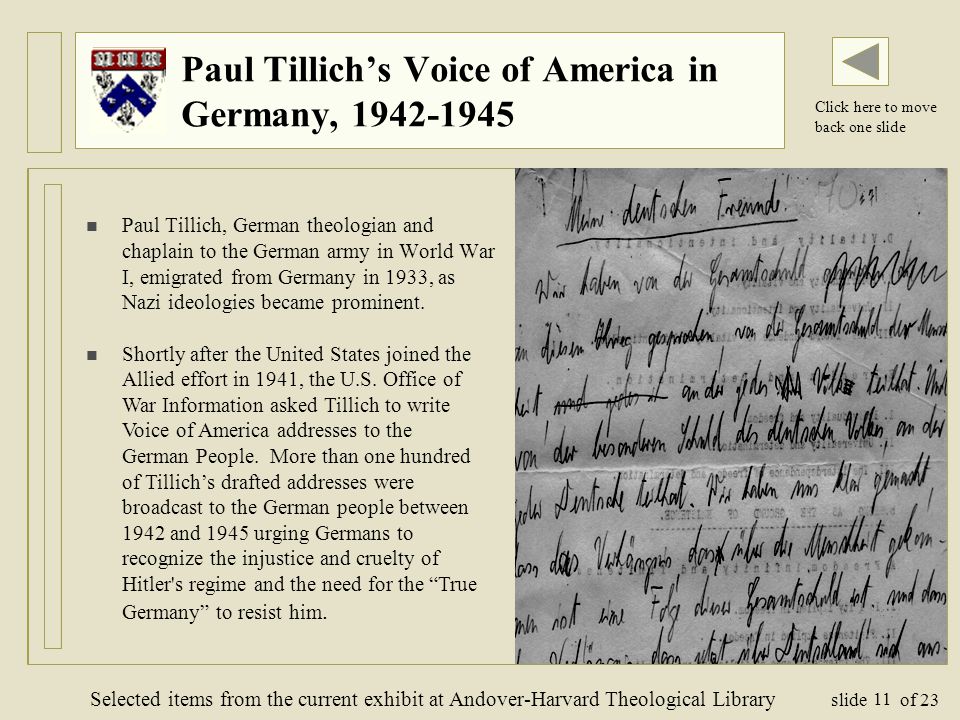 Paul Tillich’s Voice of America in
Germany, 1942-1945
Click here to move
back one slide
■ Paul Tillich, German theologian and
chaplain to the German army in World War
I, emigrated from Germany in 1933, as
Nazi ideologies became prominent.
■ Shortly after the United States joined the
Allied effort in 1941, the U.S. Office of
War Information asked Tillich to write
Voice of America addresses to the
German People. More than one hundred
of Tillich’s drafted addresses were
broadcast to the German people between
1942 and 1945 urging Germans to
recognize the injustice and cruelty of
Hitler's regime and the need for the “True
Germany” to resist him.
Meine deutschen Freunde!
Wir haben von der Gesamtschuld
an diesem gesprochen, von der Gesamtschuld der Mensch
heit an der jedes Volk teilhat. Und
von der besonderen Schuld des deutschen Volkes, an der
jeder Deutsche teilhat. Wir haben uns klar gemacht
dass das Verhängnis das über die Menschheit gekom-
men ist eine Folge dieser Gesamtschuld ist. und dass
das Verhängnis das jetzt über Deutschland
Selected items from the current exhibit at Andover-Harvard Theological Library
slide 11 of 23